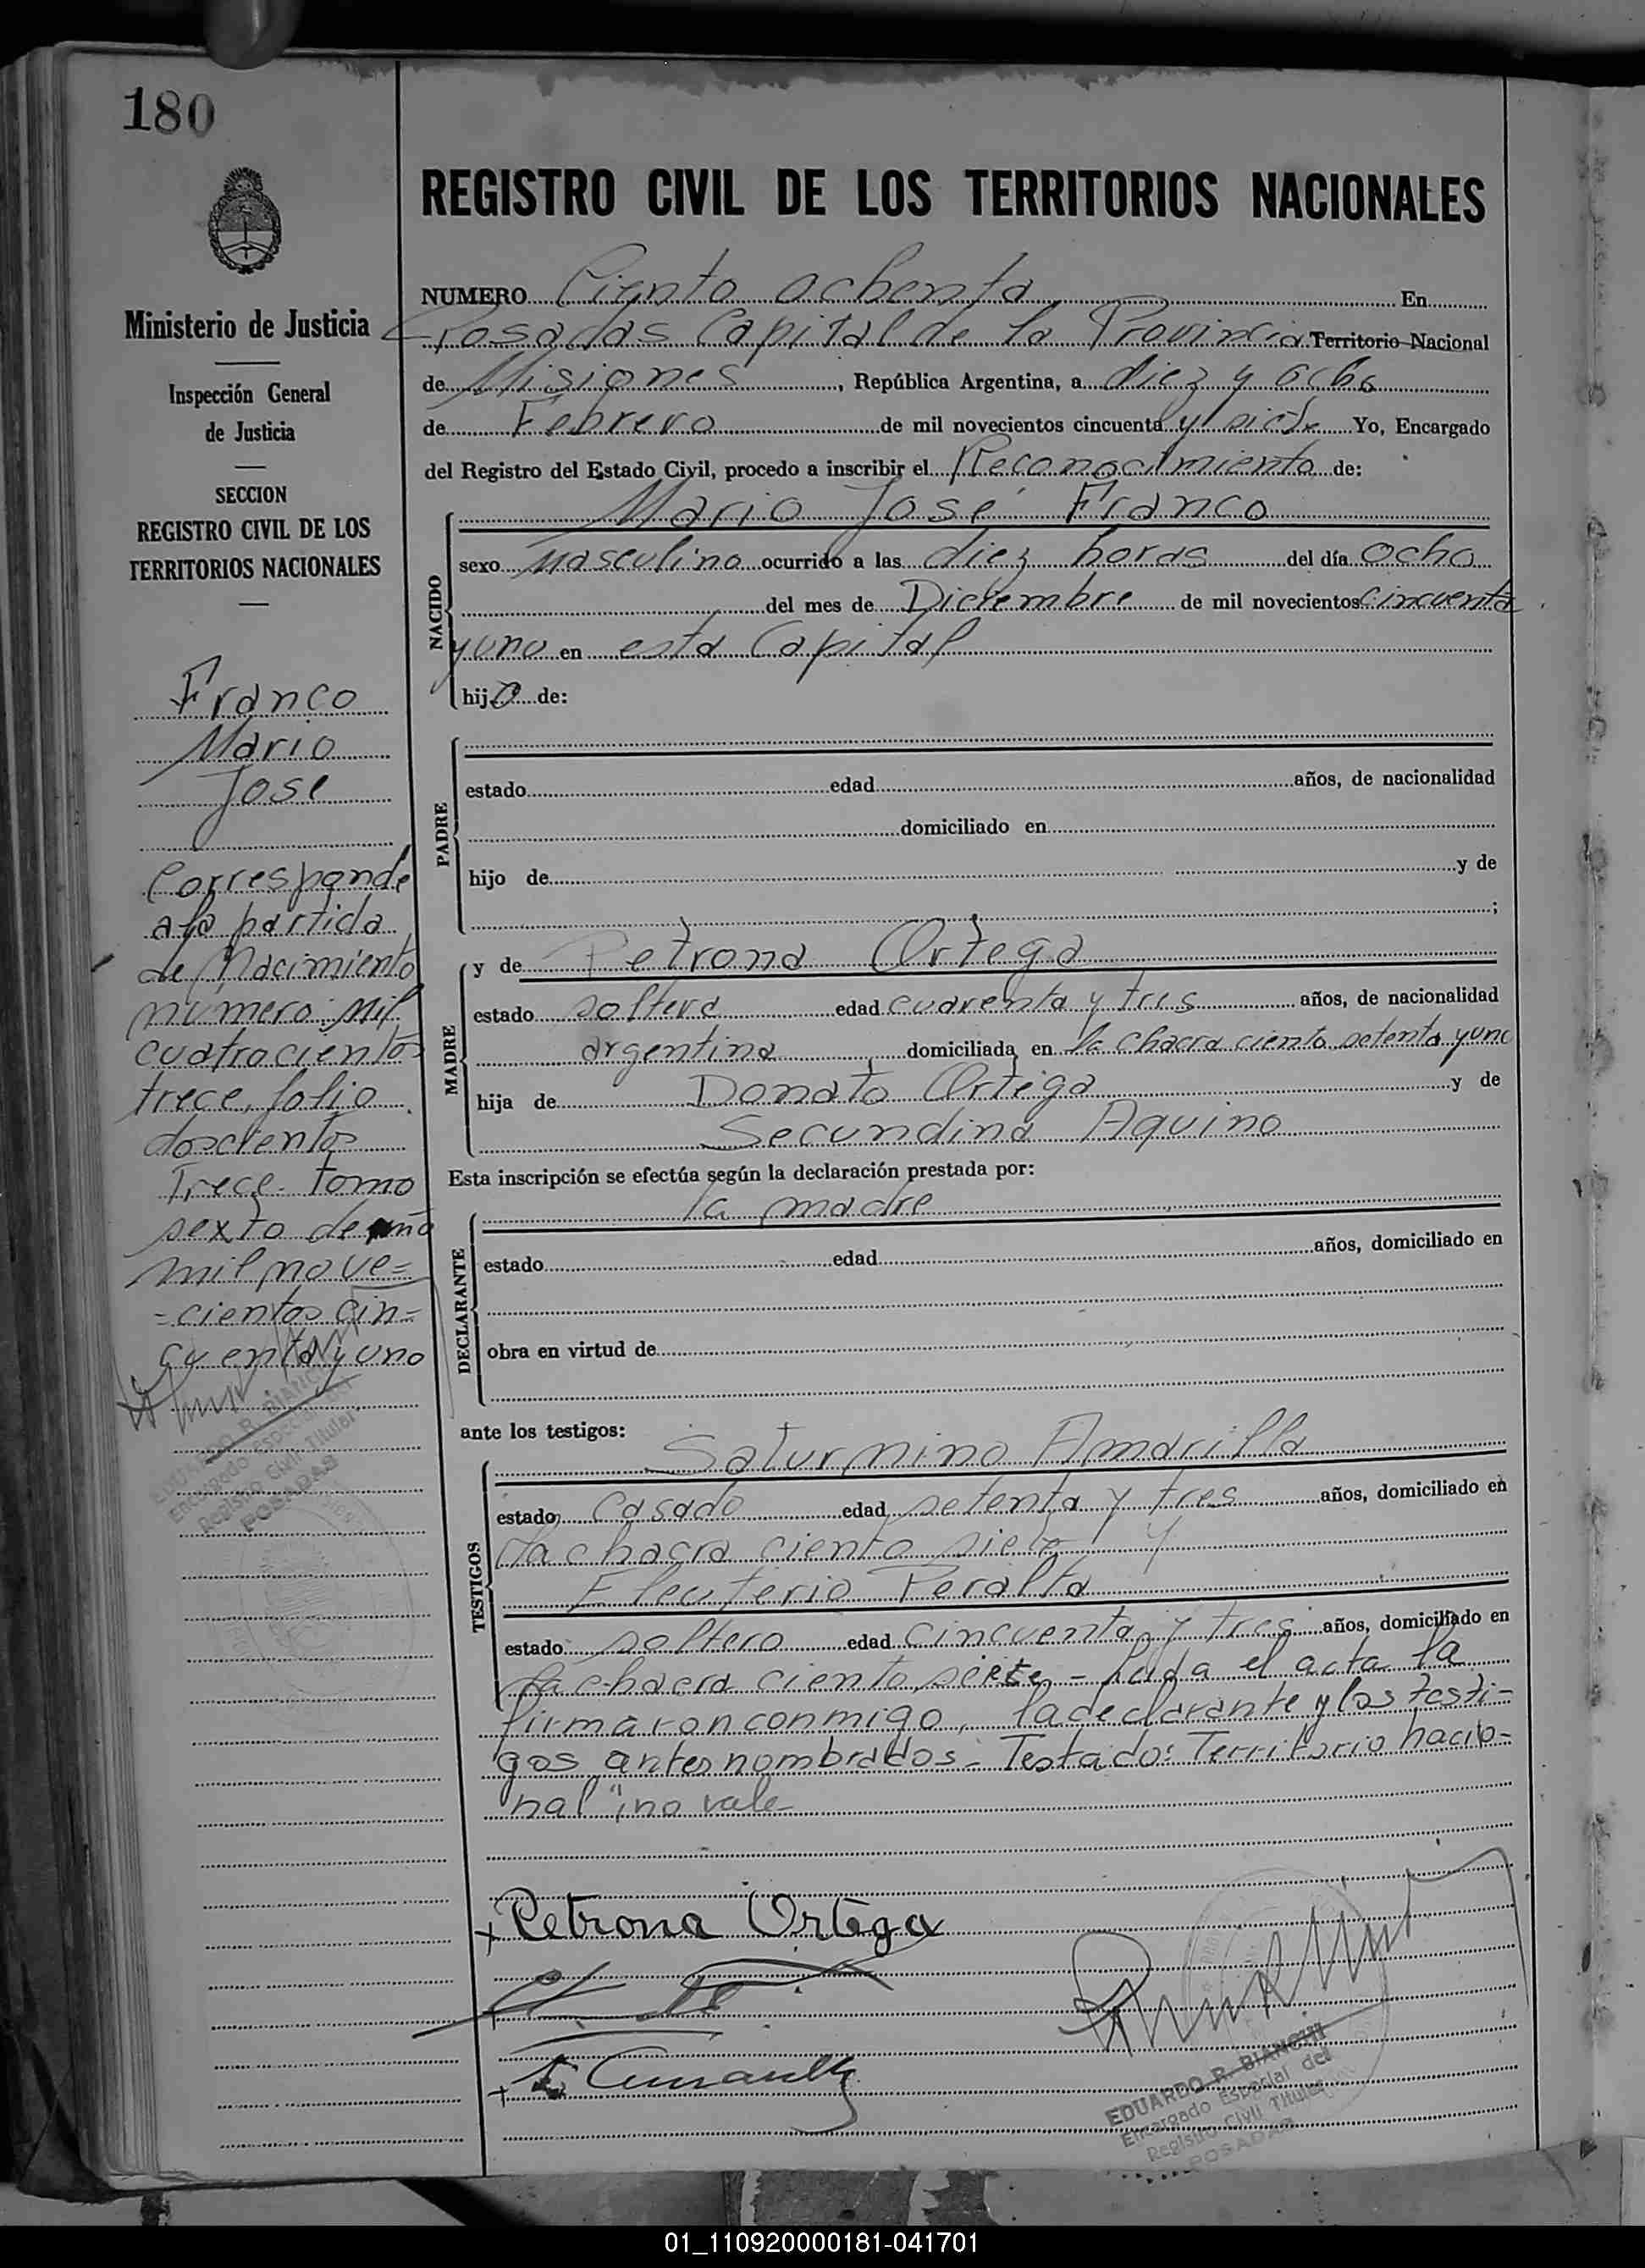 180
REGISTRO CIVIL DE LOS TERRITORIOS NACIONALES
Ministerio de Justicia
Inspección General
de Justicia
SECCION
REGISTRO CIVIL DE LOS
TERRITORIOS NACIONALES
Franco
Mario
José
Corresponde
a la partida
de Nacimiento
número: Mil
cuatrocientos
trece, folio
doscientos
Trece. Tomo
sexto de año
mil nove=
=cientos cin=
cuenta y uno
EDUARDO R. BIANCHI
Encargado Especial del
Registro Civil Titular
POSADAS
NUMERO Ciento ochenta En
Posadas Capital de la Provincia Territorio Nacional
de Misiones, República Argentina, a diez y ocho
de Febrero de mil novecientos cincuenta y siete Yo, Encargado
del Registro del Estado Civil, procedo a inscribir el Reconocimiento de:
NACIDO
Mario José Franco
sexo masculino ocurrido a las diez horas del día ocho
del mes de Diciembre de mil novecientos cincuenta
y uno en esta Capital
hijo de:
PADRE
estado edad años, de nacionalidad
domiciliado en
hijo de y de
;
MADRE
y de Petrona Ortega
estado soltera edad cuarenta y tres años, de nacionalidad
argentina domiciliada en la chacra ciento setenta y uno
hija de Donato Ortega y de
Secundina Aquino
Esta inscripción se efectúa según la declaración prestada por:
DECLARANTE
la madre
estado edad años, domiciliado en
obra en virtud de
ante los testigos:
TESTIGOS
Saturnino Amarilla
estado casado edad setenta y tres años, domiciliado en
la chacra ciento siete y
Eleuterio Peralta
estado soltero edad cincuenta y tres años, domiciliado en
la chacra ciento siete - Leída el acta la
firmaron conmigo, la declarante y los testi-
gos antes nombrados - Testado: Territorio nacio-
nal" no vale
Petrona Ortega
EDUARDO R. BIANCHI
Encargado Especial del
Registro Civil Titular
POSADAS
01_110920000181-041701